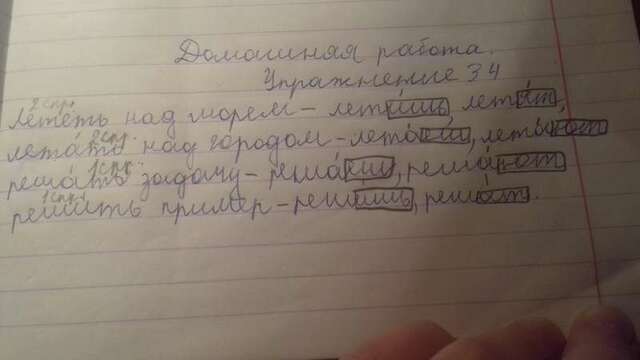 Домашняя работа.
Упражнение 34
2спр.
Лететь над морем - летишь, летят,
2спр.
летать над городом - летаеш, летают
1спр.
решать задачу - решаеш, решают
1спр.
решить пример - решишь, решат.